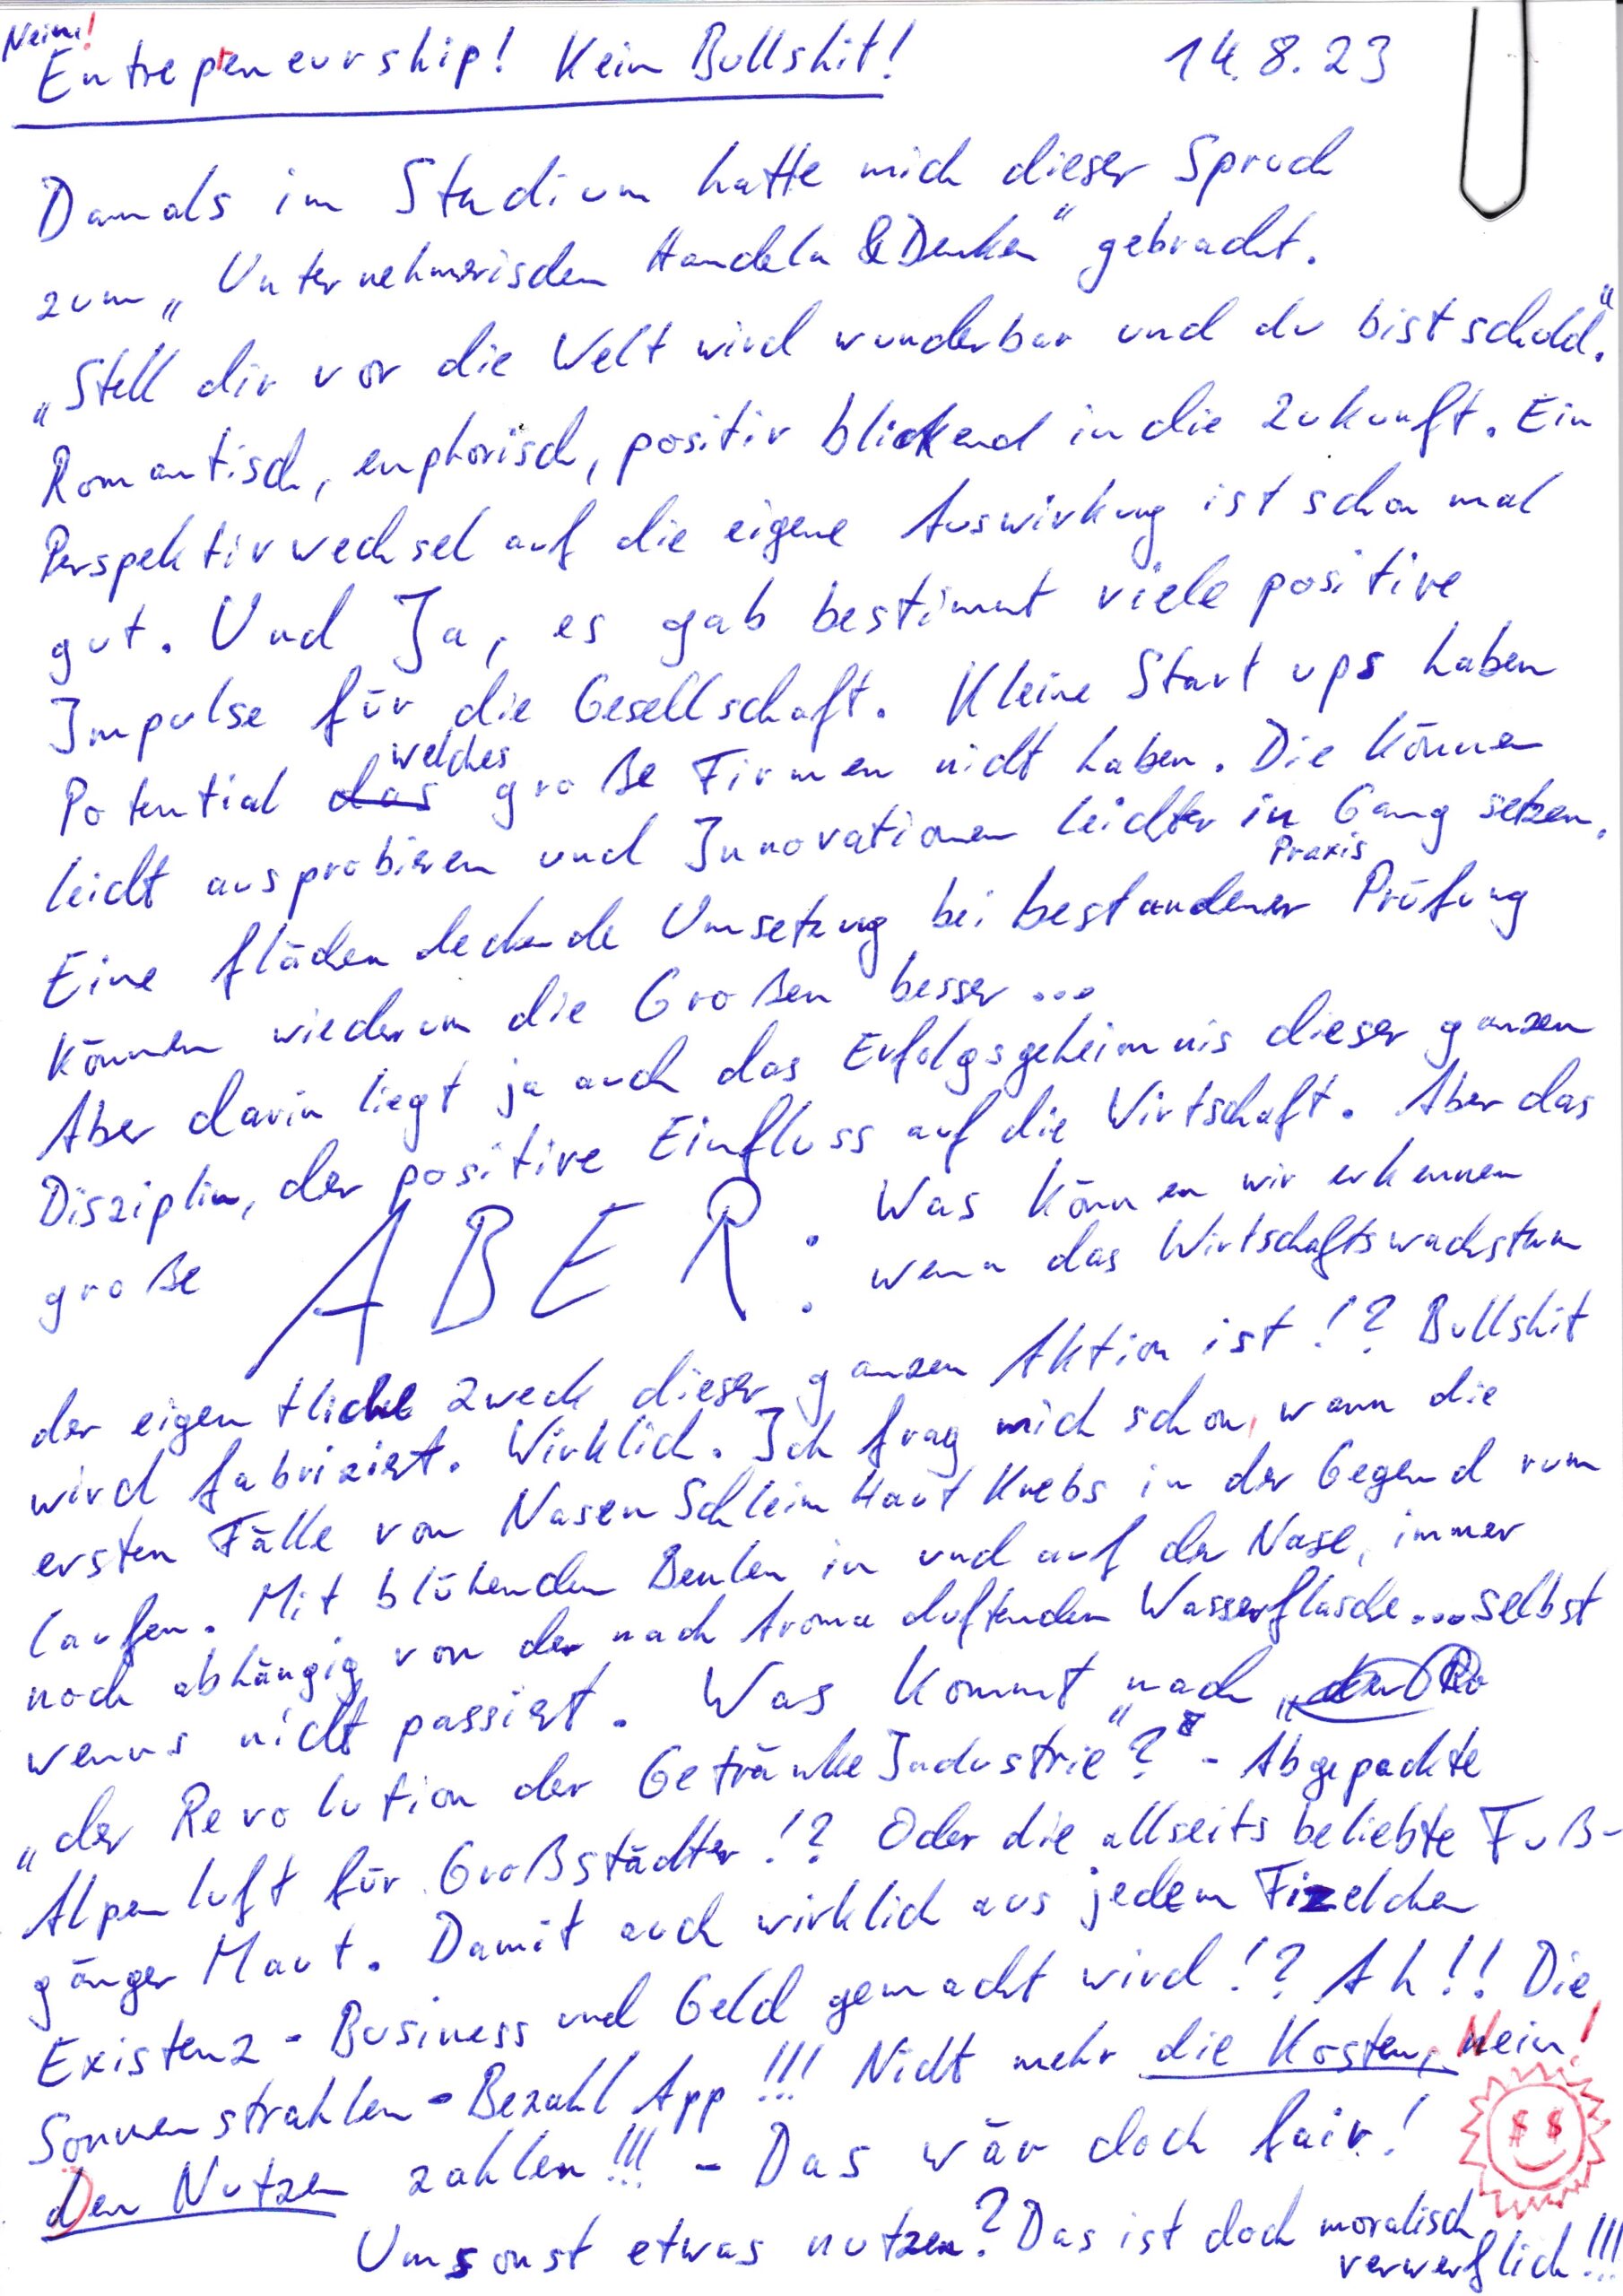 Nein!
Entrepreneurship! Kein Bullshit! 14.8.23
Damals im Studium hatte mich dieser Spruch
zum „Unternehmerischen Handeln & Denken“ gebracht.
„Stell dir vor die Welt wird wunderbar und du bist schuld.“
Romantisch, euphorisch, positiv blickend in die Zukunft. Ein
Perspektivwechsel auf die eigene Auswirkung ist schon mal
gut. Und Ja, es gab bestimmt viele positive
Impulse für die Gesellschaft. Kleine Start ups haben
welches
Potential das große Firmen nicht haben. Die können
leicht ausprobieren und Innovationen leichter in Gang setzen.
Praxis
Eine flächendeckende Umsetzung bei bestandener Prüfung
können wiederum die Großen besser...
Aber darin liegt ja auch das Erfolgsgeheimnis dieser ganzen
Disziplin, der positive Einfluss auf die Wirtschaft. Aber das
große ABER: Was können wir erkennen
wenn das Wirtschaftswachstum
der eigentliche Zweck dieser ganzen Aktion ist!? Bullshit
wird fabriziert. Wirklich. Ich frag mich schon, wann die
ersten Fälle von NasenSchleimHautKrebs in der Gegend rum
laufen. Mit blühenden Beulen in und auf der Nase, immer
noch abhängig von der nach Aroma duftenden Wasserflasche...selbst
wenns nicht passiert. Was kommt „nach „
„der Revolution der GetränkeIndustrie“? - Abgepackte
Alpenluft für Großstädter!? Oder die allseits beliebte Fuß-
gänger Maut. Damit auch wirklich aus jedem Fizelchen
Existenz-Business und Geld gemacht wird!? Ah!! Die
Sonnenstrahlen-Bezahl App!!! Nicht mehr die Kosten, Nein!
Den Nutzen zahlen!!! - Das wär doch fair!
$ $
Umsonst etwas nutzen? Das ist doch moralisch
verwerflich!!!